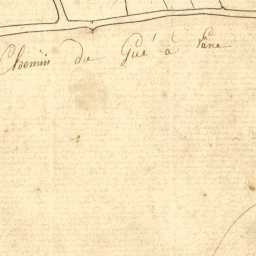 Chemin du Gué à Vane